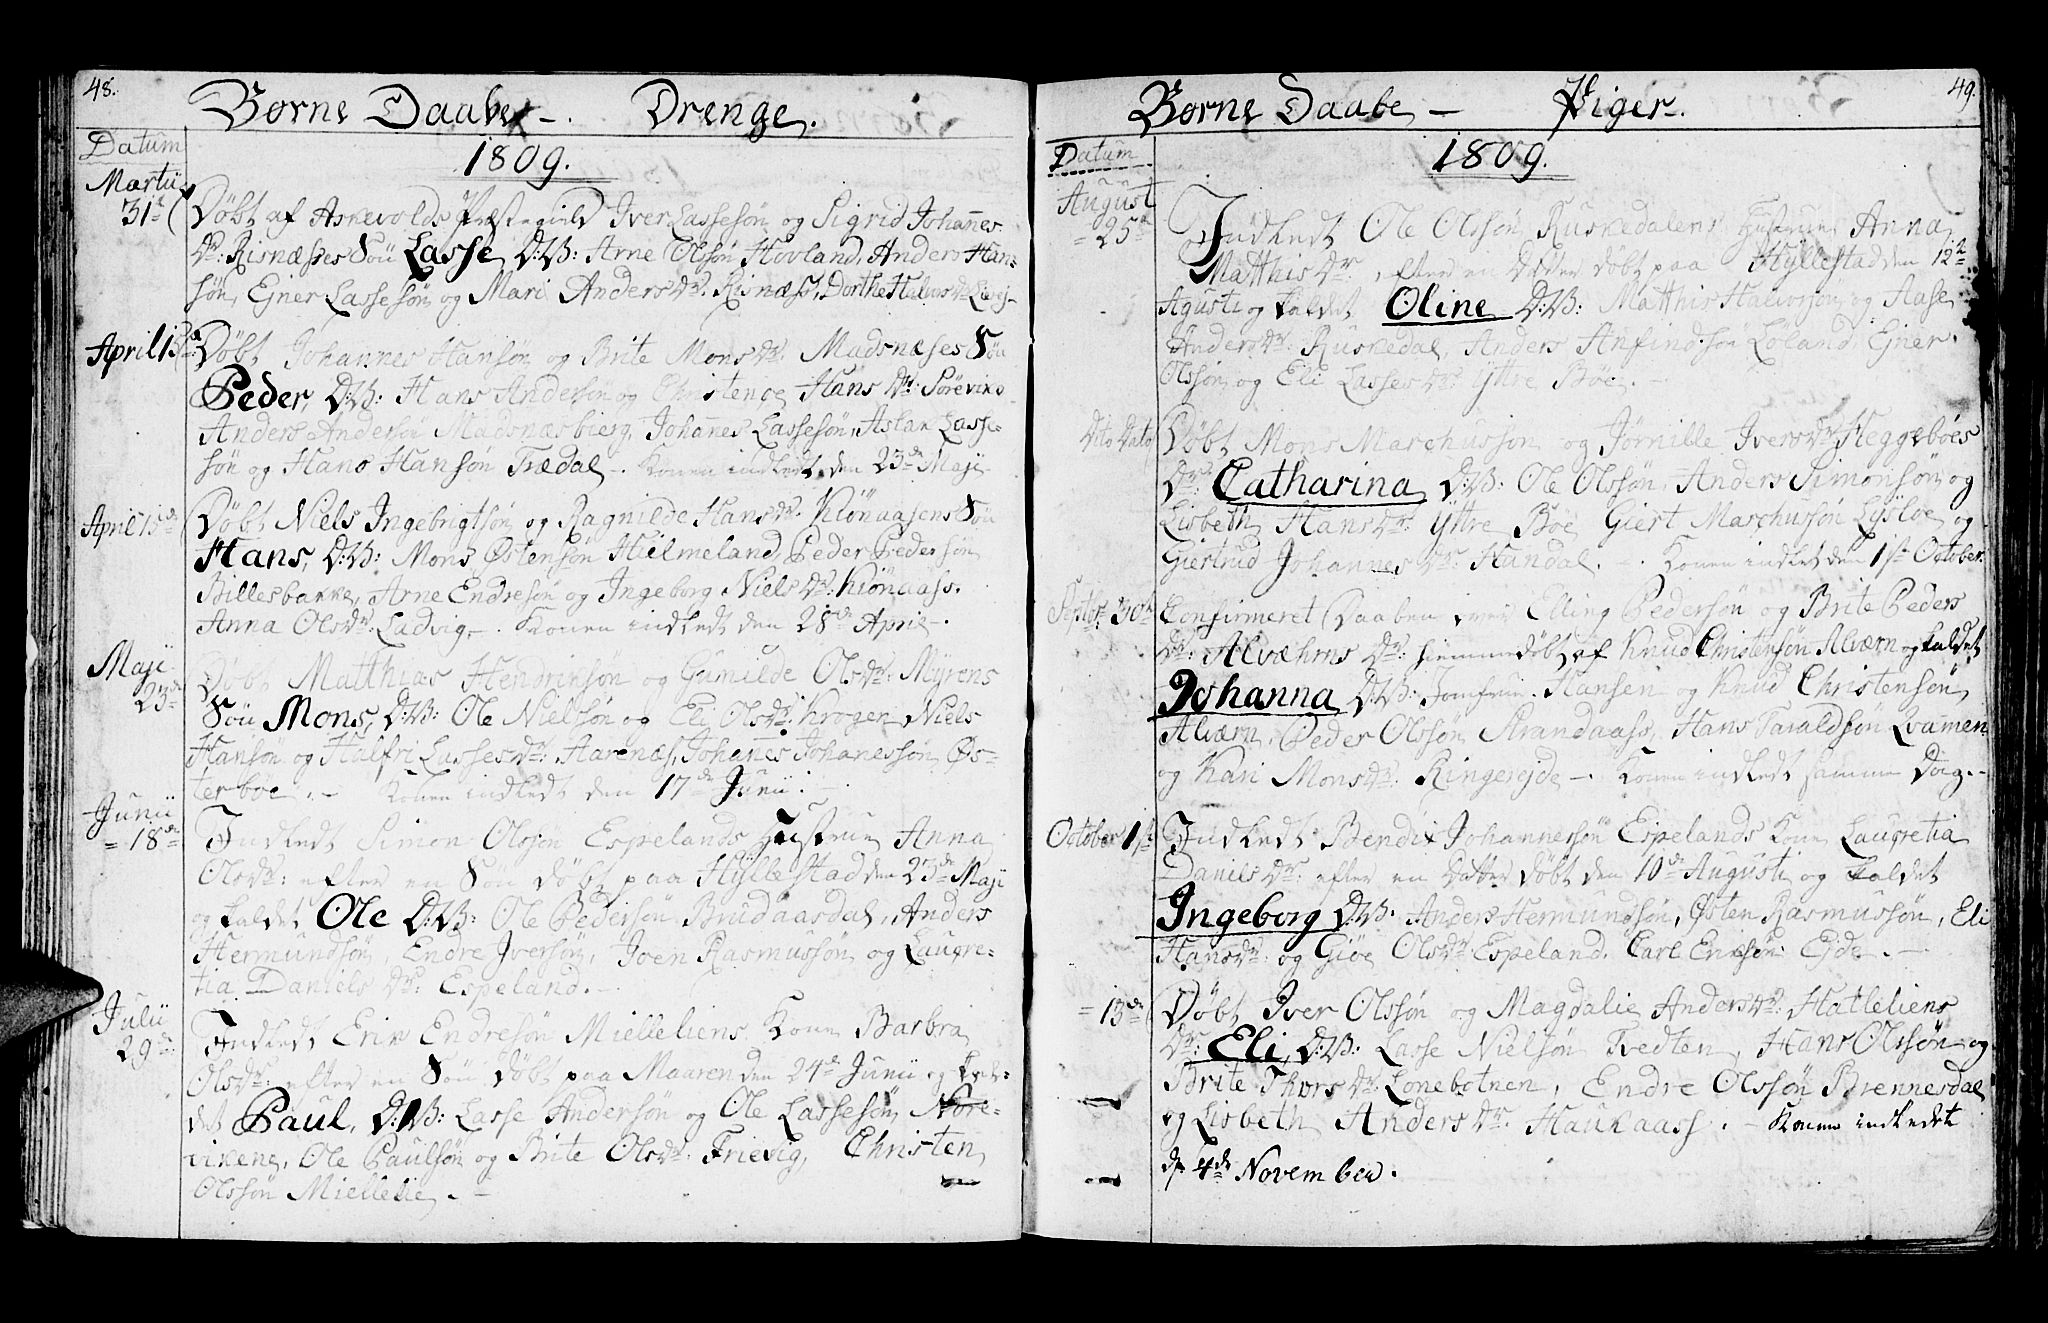 48.
Børne Daabe - . Drenge.
Datum
1809.
Martii
31te
Døbt af Askevolds Præstegield Iver Lassesøn og Sigrid Johannes
Dr: Risnæsses Søn Lasse D:V: Arne Olssøn Hovland, Anders Han-
søn, Ejner Lassesøn og Mari Anders Dr. Risnæss, Dorthe Halvors Dr
April 15de
Døbt Johannes Hansøn og Brite Mons Dr. Madsnæses Søn
Peder, D:V: Hans Andersøn og Christence Hans Dr: Sørevik
Anders Andersøn Madsnæsbierg, Johañes Lassesøn, Aslak Lasse-
søn og Hans Hansøn Trædal -. Konen indledt den 23de Maji
April 15de
Døbt Niels Ingebrigtsøn og Ragnilde Hans Dr. Kiönaasens Søn
Hans, D:V: Mons Østensøn Hielmeland, Peder Pedersøn
Billesbakke, Arne Endresøn og Ingeborg Niels Dr: Kiönaass.
Anna Ols Dr: Ladvig -. Konen indledt den 28de April -.
Maji
23de
Døbt Matthias Hendriksøn og Gunilde Ols Dr: Myrens
Søn Mons, D:V: Ole Nielsøn og Eli Ols Dr: Krogen, Niels
Hansøn og Halfri Lasses Dr: Aarenæs, Johañes Johanessøn Øs-
terbøe. - Konen indledt den 17de Junii. -
Junii
= 18de
Indledt Simon Olssøn Espelands Hustrue Anna
Ols Dr: efter en Søn døbt paa Hyllestad den 23de Maji
og kaldet Ole D:V: Ole Pedersøn Brudaasdal, Anders
Hermundsøn, Endre Iversøn, Joen Rasmussøn og Laugre-
tia Daniels Dr: Espeland. -
Julii
29de
Indledt Erik Endresøn Mielleliens Kone Barbra
Ols Dr. efter en Søn døbt paa Maaren den 24de Junii og kal-
det Paul, D:V: Lasse Andersøn og Ole Lassesøn Nore-
vikene, Ole Paulsøn og Brite Ols Dr. Frievig, Christen
Olssøn Miellelie. -
49.
Børne Daabe - Piger.
Datum
1809.
August
= 25de
Indledt Ole Olssøn Ruskedalens Hustrue Anna
Matthis Dr, efter en Datter døbt paa Hyllestad den 12te
Agusti og kaldet Oline D:V: Matthis Halvorsøn og Aase
Anders Dr. Ruskedal, Anders Anfindsøn Løland, Ejner
Olssøn og Eli Lasses Dr: Yttre Bøe.
Dito Dato
Døbt Mons Marchussøn og Jørnille Ivers Dr. Heggebøes
Dr: Catharina, D:V: Ole Olssøn, Anders Simonsøn og
Lisbeth Hans Dr: Yttre Bøe, Giert Marchussøn Lysløe og
Giertrud Johannes Dr: Handal. -. Konen indledt den 1st October.
Septbr 30te
Confirmeret Daaben over Elling Pedersøn og Brite Peders
Dr: Alværns Dr: hiemmedøbt af Knud Christensøn Alværn og kaldet
Johanna D:V: Jomfrue Hansen og Knud Christensøn
Alværn, Peder Olssøn Strandaass, Hans Taraldsøn Qvamen
og Kari Mons Dr: Ringerejde -. Konen indledt samme Dag -
October 1st
Indledt Bendix Johannessøn Espelands Kone Laugretia
Daniels Dr: efter en Datter døbt den 10de Augusti og kaldet
Ingeborg D:V: Anders Hermundsøn, Østen Rasmussøn, Eli
Hans Dr: og Giøe Ols Dr: Espeland. Carl Ensøn Ejde. -
= 13de
Døbt Iver Olssøn og Magdalie Anders Dr. Hatleliens
Dr: Eli, D:V: Lasse Nielsøn Tvedten, Hans Olssøn og
Brite Thors Dr. Lonebotnen, Endre Olssøn Brennesdal
og Lisbeth Anders Dr. Haukaass. - Konen indledet
d. 4de November.